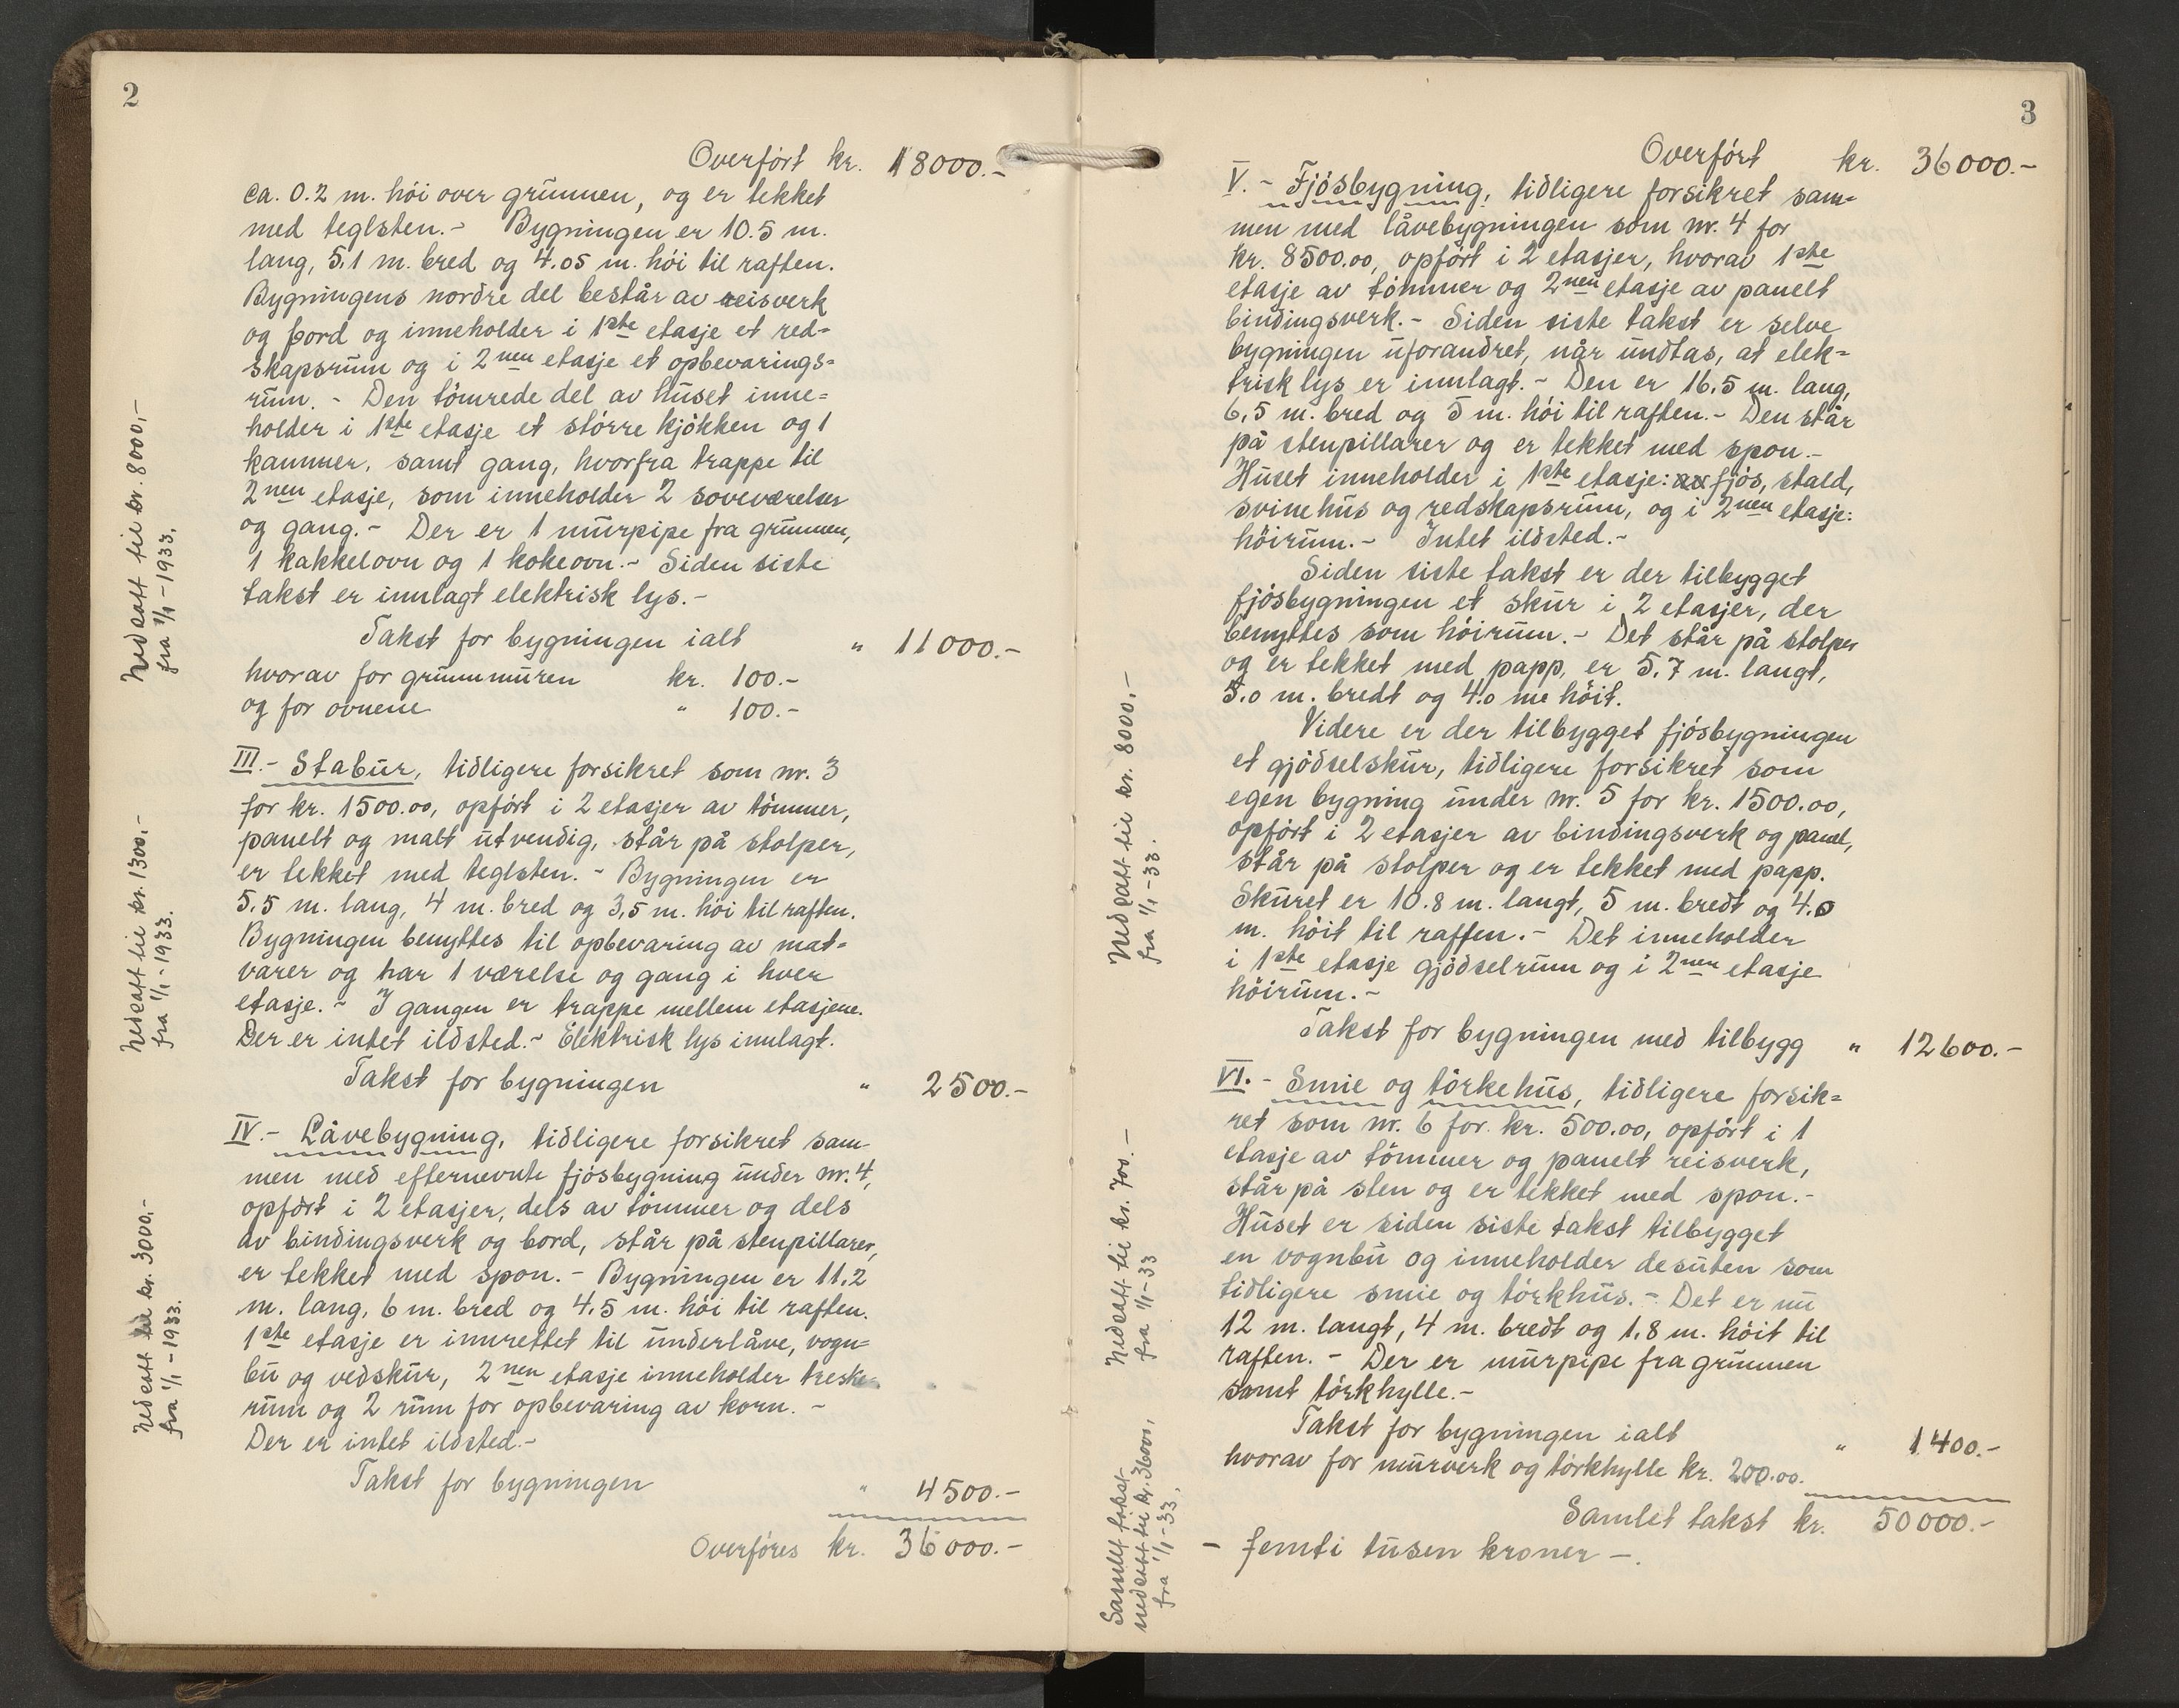 2
Overført kr. 18000.-
ca. 0.2 m. høi over grunnen, og er tekket
med teglsten.- Bygningen er 10.5 m.
lang, 5,1 m. bred og 4.05 m. høi til raften.
Bygningens nordre del består av reisverk
og bord og inneholder i 1ste etasje et red=
skapsrum og i 2nen etasje et opbevarings=
rum. - Den tømrede del av huset inne=
holder i 1ste etasje et større kjøkken og 1
kammer, samt gang, hvorfra trappe til
2nen etasje, som inneholder 2 soveværelser
og gang.- Der er 1 murpipe fra grunnen,
1 kakkelovn og 1 kokeovn.- Siden siste
takst er innlagt elektrisk lys.-
Takst for bygningen ialt " 11000.-
hvorav for grunnmuren kr. 100.-
og for ovnene " 100.-
Nedsatt til kr. 8000,-
fra 1/1 - 1933.
III.- Stabur, tidligere forsikret som nr. 3
for kr. 1500.00, opført i 2 etasjer av tømmer,
panelt og malt utvendig, står på stolper,
er tekket med teglsten. - Bygningen er
5,5 m. lang, 4 m. bred og 3,5 m. høi til raften.
Bygningen benyttes til opbevaring av mat=
varer og har 1 værelse og gang i hver
etasje. - I gangen er trappe mellem etasjene.
Der er intet ildsted.- Elektrisk lys innlagt.
Takst for bygningen " 2500.-
Nedsatt til kr. 1300,-
fra 1/1 - 1933.
IV.- Låvebygning, tidligere forsikret sam-
men med efternevnte fjøsbygning under nr. 4,
opført i 2 etasjer, dels av tømmer og dels
av bindingsverk og bord, står på stenpillarer,
er tekket med spon. - Bygningen er 11,2
m. lang, 6 m. bred og 4,5 m. høi til raften.
1ste etasje er innrettet til underlåve, vogn=
bu og vedskur, 2nen etasje inneholder treske-
rum og 2 rum for opbevaring av korn. -
Der er intet ildsted.-
Takst for bygningen " 4500.-
Overføres kr. 36000.-
Nedsatt til kr. 3000,-
fra 1/1 - 1933.
3
Overført kr. 36000.-
V. - Fjøsbygning, tidligere forsikret sam=
men med låvebygningen som nr. 4 for
kr. 8500.00, opført i 2 etasjer, hvorav 1ste
etasje av tømmer og 2nen etasje av panelt
bindingsverk. - Siden siste takst er selve
bygningen uforandret, når undtas, at elek=
trisk lys er innlagt. - Den er 16,5 m. lang,
6,5 m. bred og 5 m. høi til raften.- Den står
på stenpillarer og er tekket med spon.-
Huset inneholder i 1ste etasje: fjøs, stald,
svinehus og redskapsrum, og i 2nen etasje:
høirum.- Intet ildsted.-
Siden siste takst er der tilbygget
fjøsbygningen et skur i 2 etasjer, der
benyttes som høirum.- Det står på stolper
og er tekket med papp, er 5,7 m. langt,
5.0 m. bredt og 4.0 me høit.
Videre er der tilbygget fjøsbygningen
et gjødselskur, tidligere forsikret som
egen bygning under nr. 5 for kr. 1500.00,
opført i 2 etasjer av bindingsverk og panel,
står på stolper og er tekket med papp.
Skuret er 10.8 m. langt, 5 m. bredt og 4.0
m. høit til raften.- Det inneholder
i 1ste etasje gjødselrum og i 2nen etasje
høirum.-
Takst for bygningen med tilbygg " 12600.-
Nedsatt til kr. 8000,-
fra 1/1 - 33.
VI. - Smie og tørkehus, tidligere forsik=
ret som nr. 6 for kr. 500.00, opført i 1
etasje av tømmer og panelt reisverk,
står på sten og er tekket med spon.-
Huset er siden siste takst tilbygget
en vognbu og inneholder desuten som
tidligere smie og tørkhus.- Det er nu
12 m. langt, 4 m. bredt og 1,8 m. høit til
raften. - Der er murpipe fra grunnen
samt tørkhylle.-
Takst for bygningen ialt " 1400.-
hvorav for murverk og tørkhylle kr. 200.00.
Nedsatt til kr. 700.-
fra 1/1 - 33
Samlet takst kr. 50000.-
- femti tusen kroner -.
Samlet takst
nedsatt til kr. 36000,
fra 1/1 - 33.